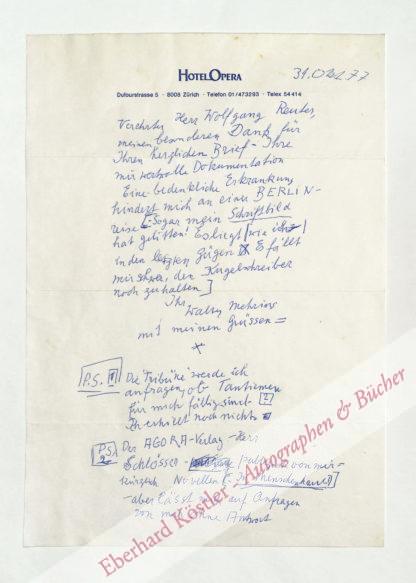 HOTEL OPERA
31. Okt. 77
Dufourstrasse 5 · 8008 Zürich · Telefon 01/473293 · Telex 54414
Verehrter Herr Wolfgang Reuter,
meinen besonderen Dank für
Ihren herzlichen Brief - Ihre
mir wertvolle Dokumentation
Eine bedenkliche Erkrankung
hindert mich an einer BERLIN-
reise [- Sogar mein Schriftbild
hat gelitten! Es liegt wie ich
in den letzten Zügen Es fällt
mir schwer, den Kugelschreiber
noch zu halten]
Ihr
Walter Mehring
mit meinen Grüssen =
P.S. 1 Die Tribüne werde ich
anfragen, ob Tantiemen
für mich fällig sind [?]
Ich erhielt noch nichts
P.S. 2 Der AGORA-Verlag - Herr
Schlösser - von mir -
kürzlich Novellen
- aber lässt auf Anfragen
von mir ohne Antwort
Eberhard Köstler - Autographen & Bücher